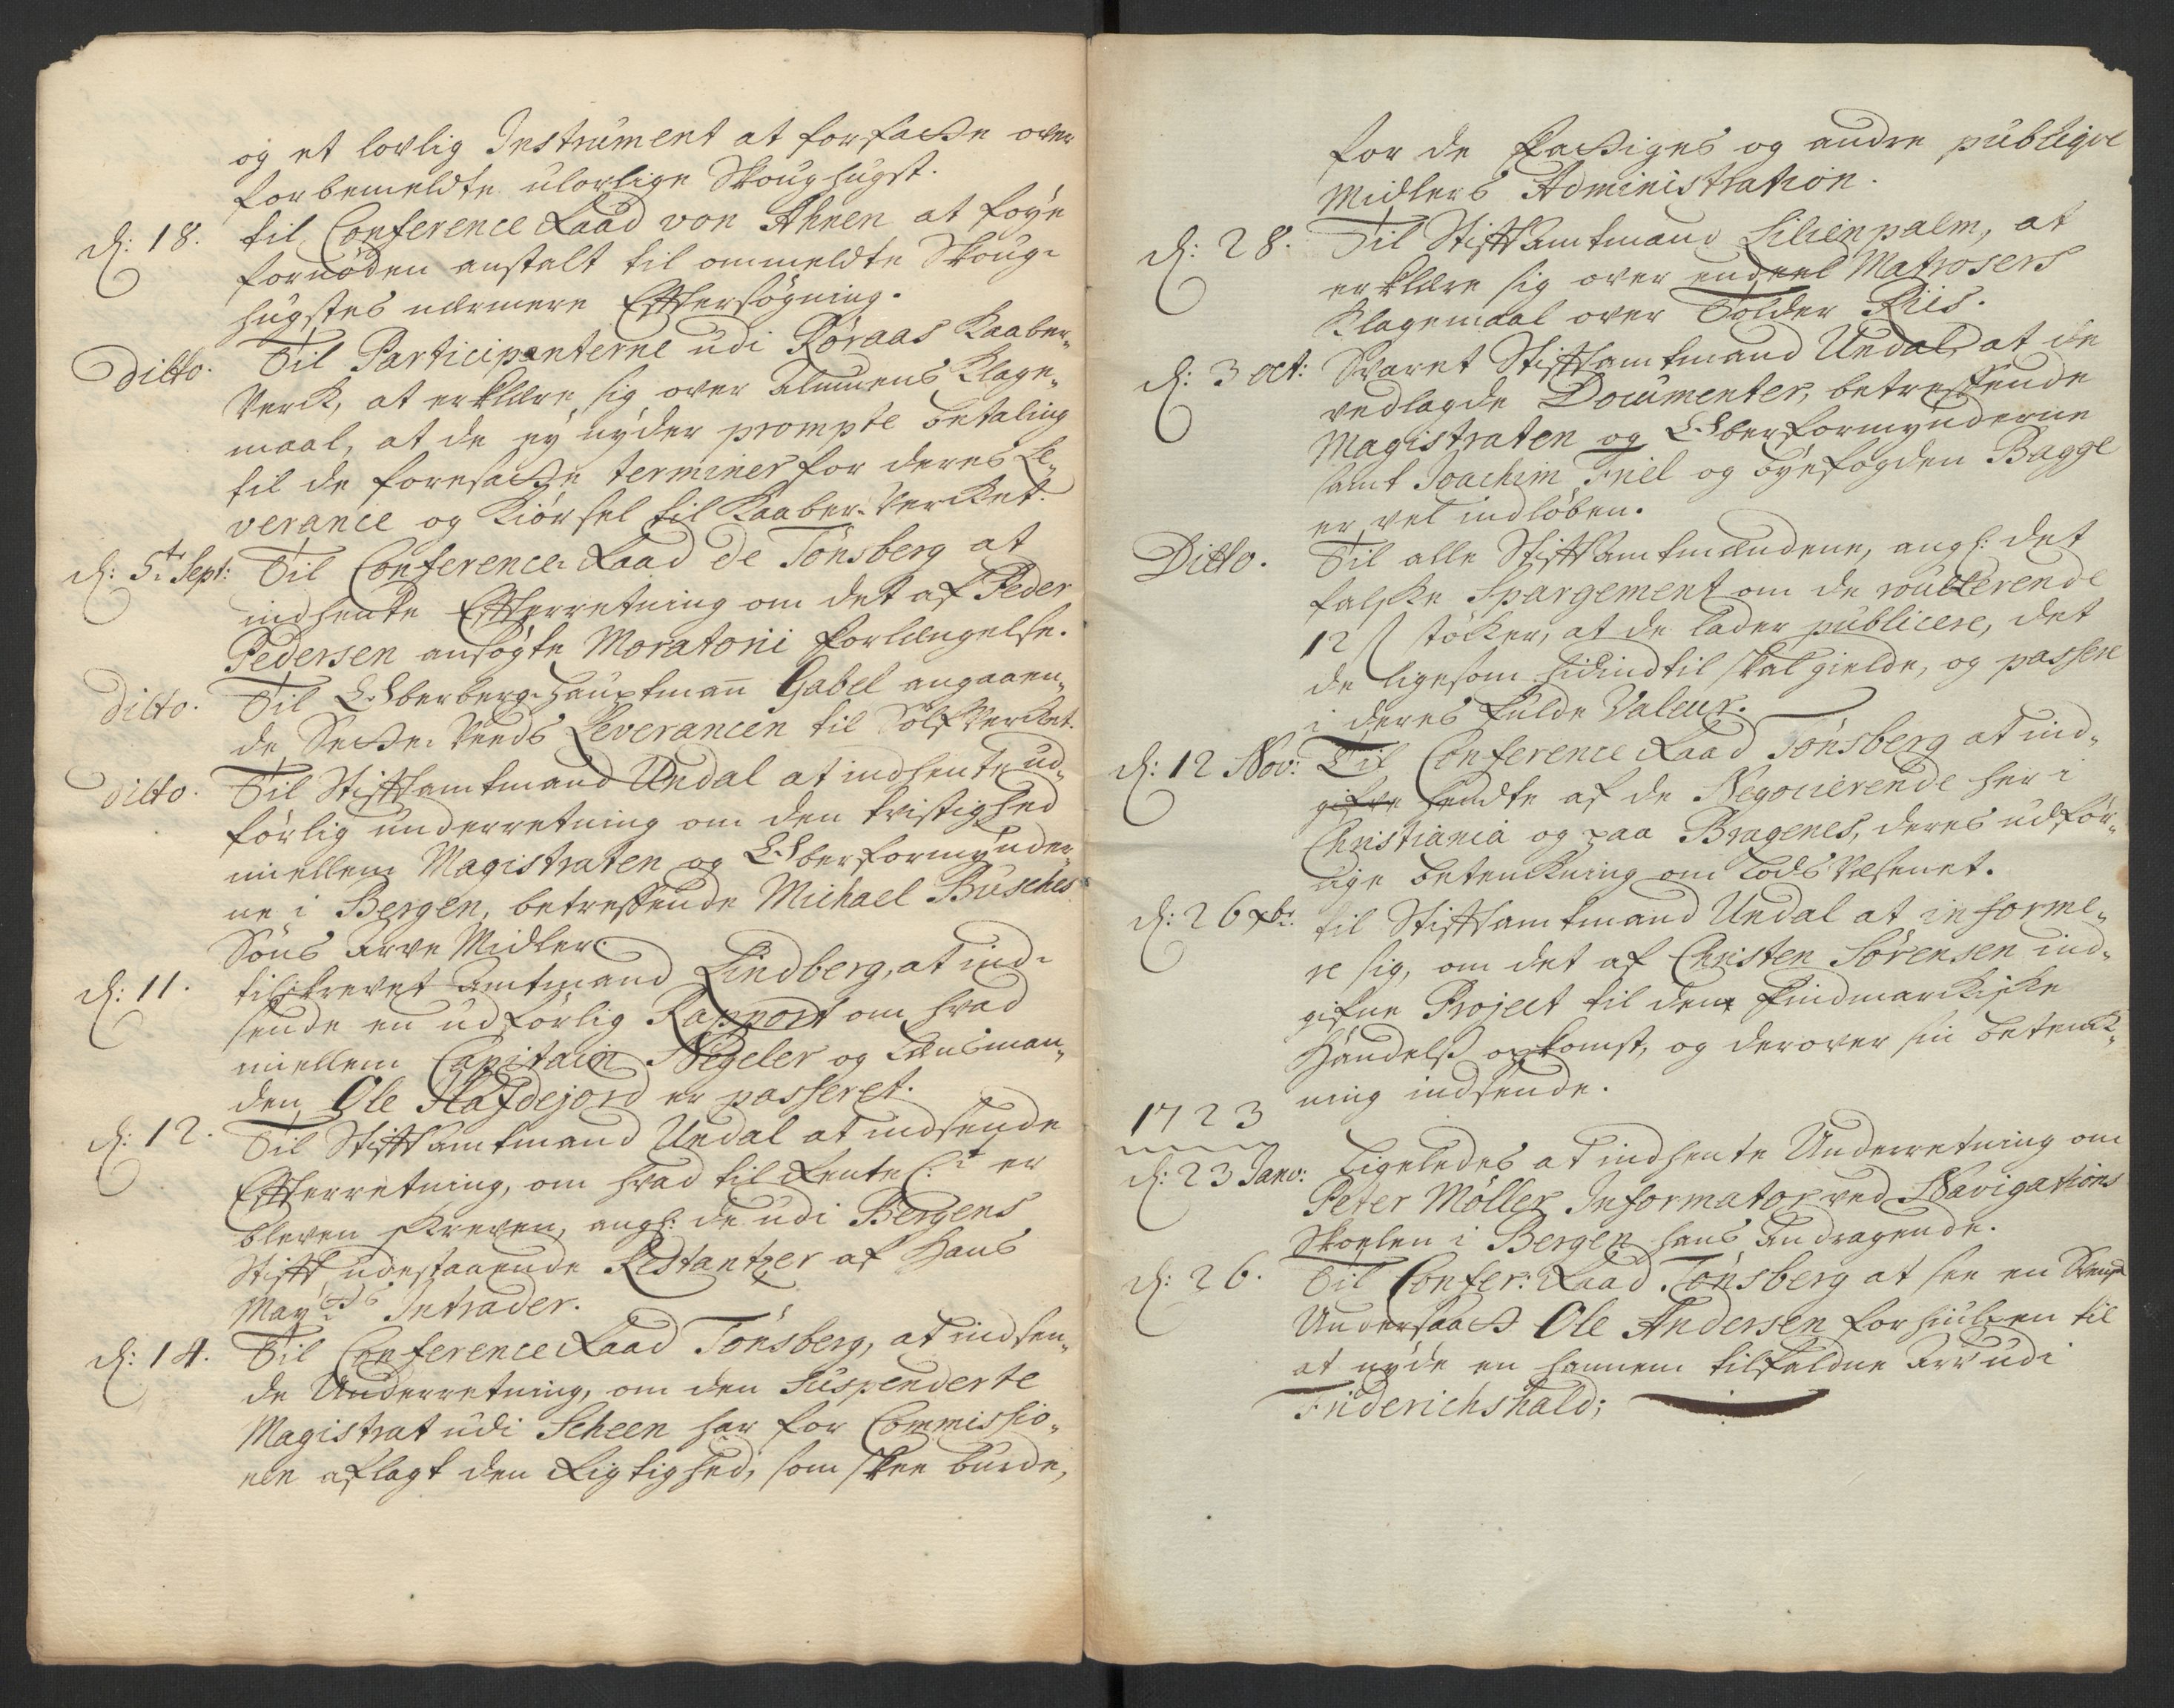 og et lovlig Instrument at forfatte over
forbemeldte ulovlige Skoughugst.
d: 18. til Conference Raad von Ahnen at föye
fornöden anstalt til ommeldte Skoug-
hugstes nærmere Efftersögning.
Ditto. Til Participanterne udi Röraas Kaaber-
Verck, at erklære sig over Almuens Klage-
maal, at de ey nyder prompte betaling
til de foresatte terminer for deres Le-
verance og Kiörsel til Kaaber-Vercket.
d: 5t Sept: Til Conference-Raad de Tönsberg at
indhente Effterretning om det af Peder
Pedersen ansögte Moratorii forlængelse.
Ditto. Til Oberberg-Hauptmann Gabel angaaen-
de Sætte-Veeds Leverancen til Sölf Vercket.
Ditto. Til Stifftamtmand Undal at indhente ud-
förlig underretning om den tvistighed
imellem Magistraten og Oberformynder-
ne i Bergen, betreffende Michael Busches
Söns Arve Midler.
d: 11. tilskrevet Amtmand Lindberg, at ind-
sende en udförlig Rapport om hvad
imellem Capitain Negeler og Lensman-
den Ole Hafdejord er passeret.
d: 12. Til Stifftamtmand Undal at indsende
Effterretning, om hvad til Rente C:t er
bleven skreven, angl: de udi Bergens
Stifft udestaaende Restantzer af Hans
May:ts Intrader.
d: 14. Til Conference Raad Tönsberg, at indsen-
de Underretning, om den Suspenderte
Magistrat udi Scheen har for Commissio-
nen aflagt den Rigtighed, som skee burde,
for de fattiges og andre publiqve
Midlers Administration.
d: 28. Til Stifftamtmand Lilienpalm, at
erklære sig over endeel Matrosers
Klagemaal over Tolder Riis.
d: 3 oct: Svaret Stifftamtmand Undal, at de
vedlagde Documenter, betreffende
Magistraten og Oberformynderne
samt Joachim Friel og byefogden Bagge
er vel indlöben.
Ditto. Til alle Stifftamtmændene, angl: det
falske Spargement om de roullerende
12 ß stöcker, at de lader publicere, det
de ligesom hidindtil skal gielde, og passere
i deres fulde Valeur.
d: 12 Nov: Til Conference Raad Tönsberg at ind-
gifve hendte af de Negocierende her i
Christiania og paa Bragenes, deres udför-
lige betenckning om Lods Væsenet.
d: 26 xbr. til Stifftamtmand Undal at informe-
re sig, om det af Christen Sörensen ind-
gifne Project til den Findmarckiske
Handels opkomst, og derover sin betenck-
ning indsende.
1723
d: 23 Janv: Ligeledes at indhente Underretning om
Peter Möller Informator ved Navigations
Skoelen i Bergen hans Andragende.
d: 26. Til Confer: Raad Tönsberg at see en Svensk
Undersaatt Ole Andersen forhiulpen til
at nyde en hannem tilfaldne Arv udi
Friderichshald;